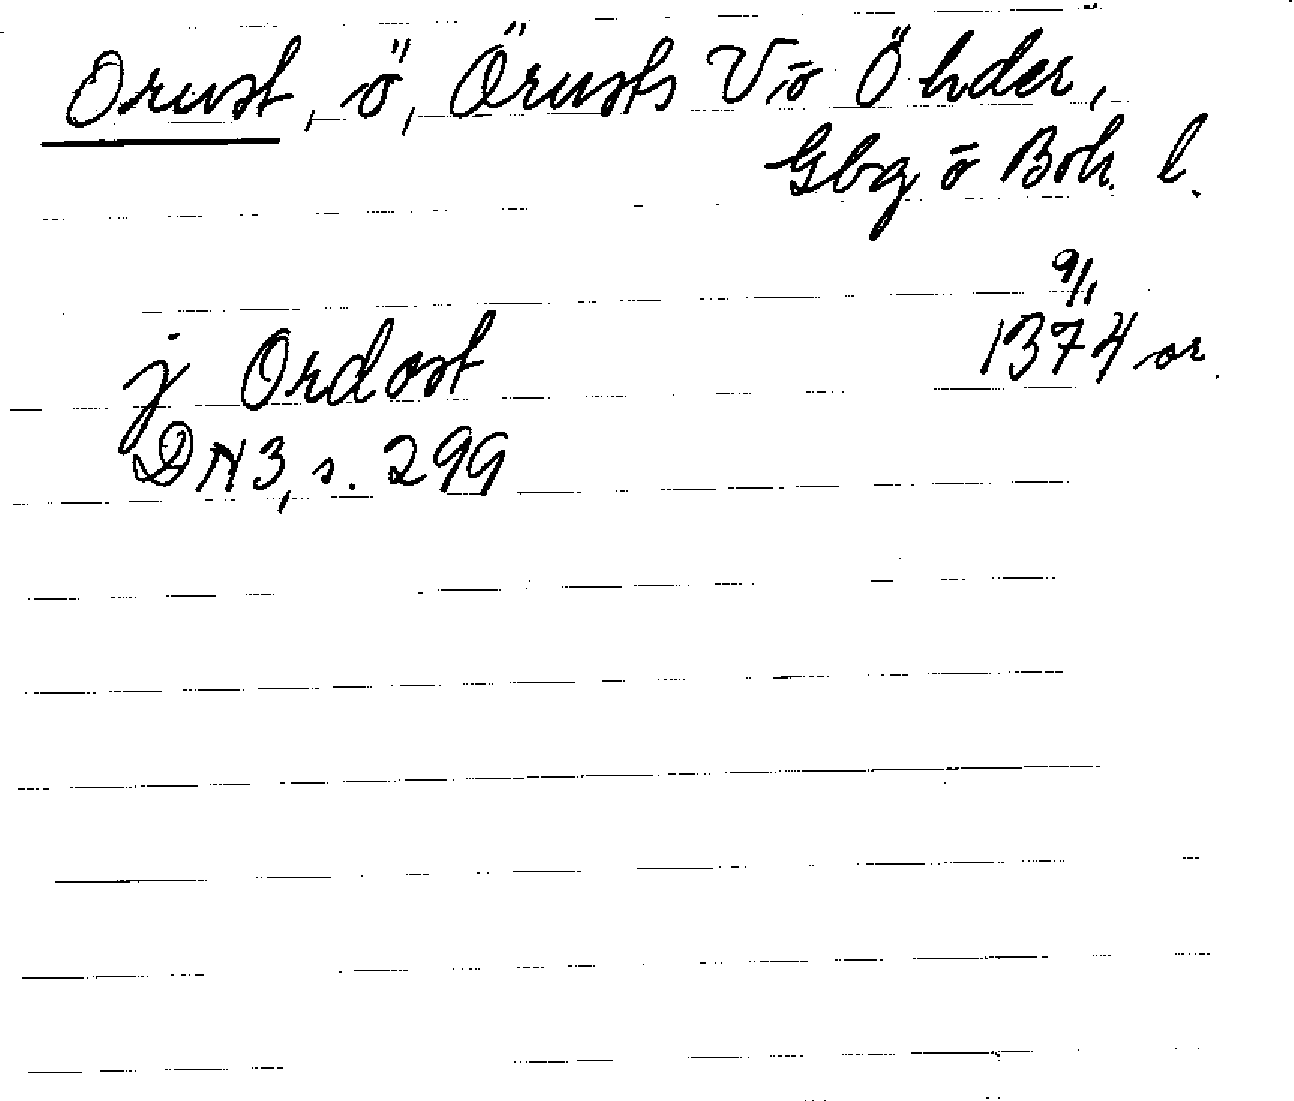 Orust, ö, Örusts V o Ö hder,
Gbg o Boh. l.
9/1
j Ordost 1374 or.
DN 3, s. 299